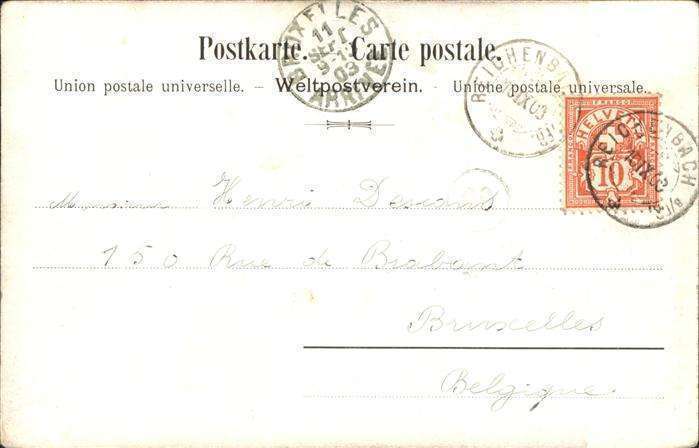 Postkarte. Carte postale.
Union postale universelle. – Weltpostverein. – Unione postale universale.
BRUXELLES
11
SEPT
03
ARRIVÉE
REICHENBACH
IX 03
FRANCO
HELVETIA
10
REICHENBACH
IX 03
Monsieur Henri
150 Rue de Brabant
Bruxelles
Belgique